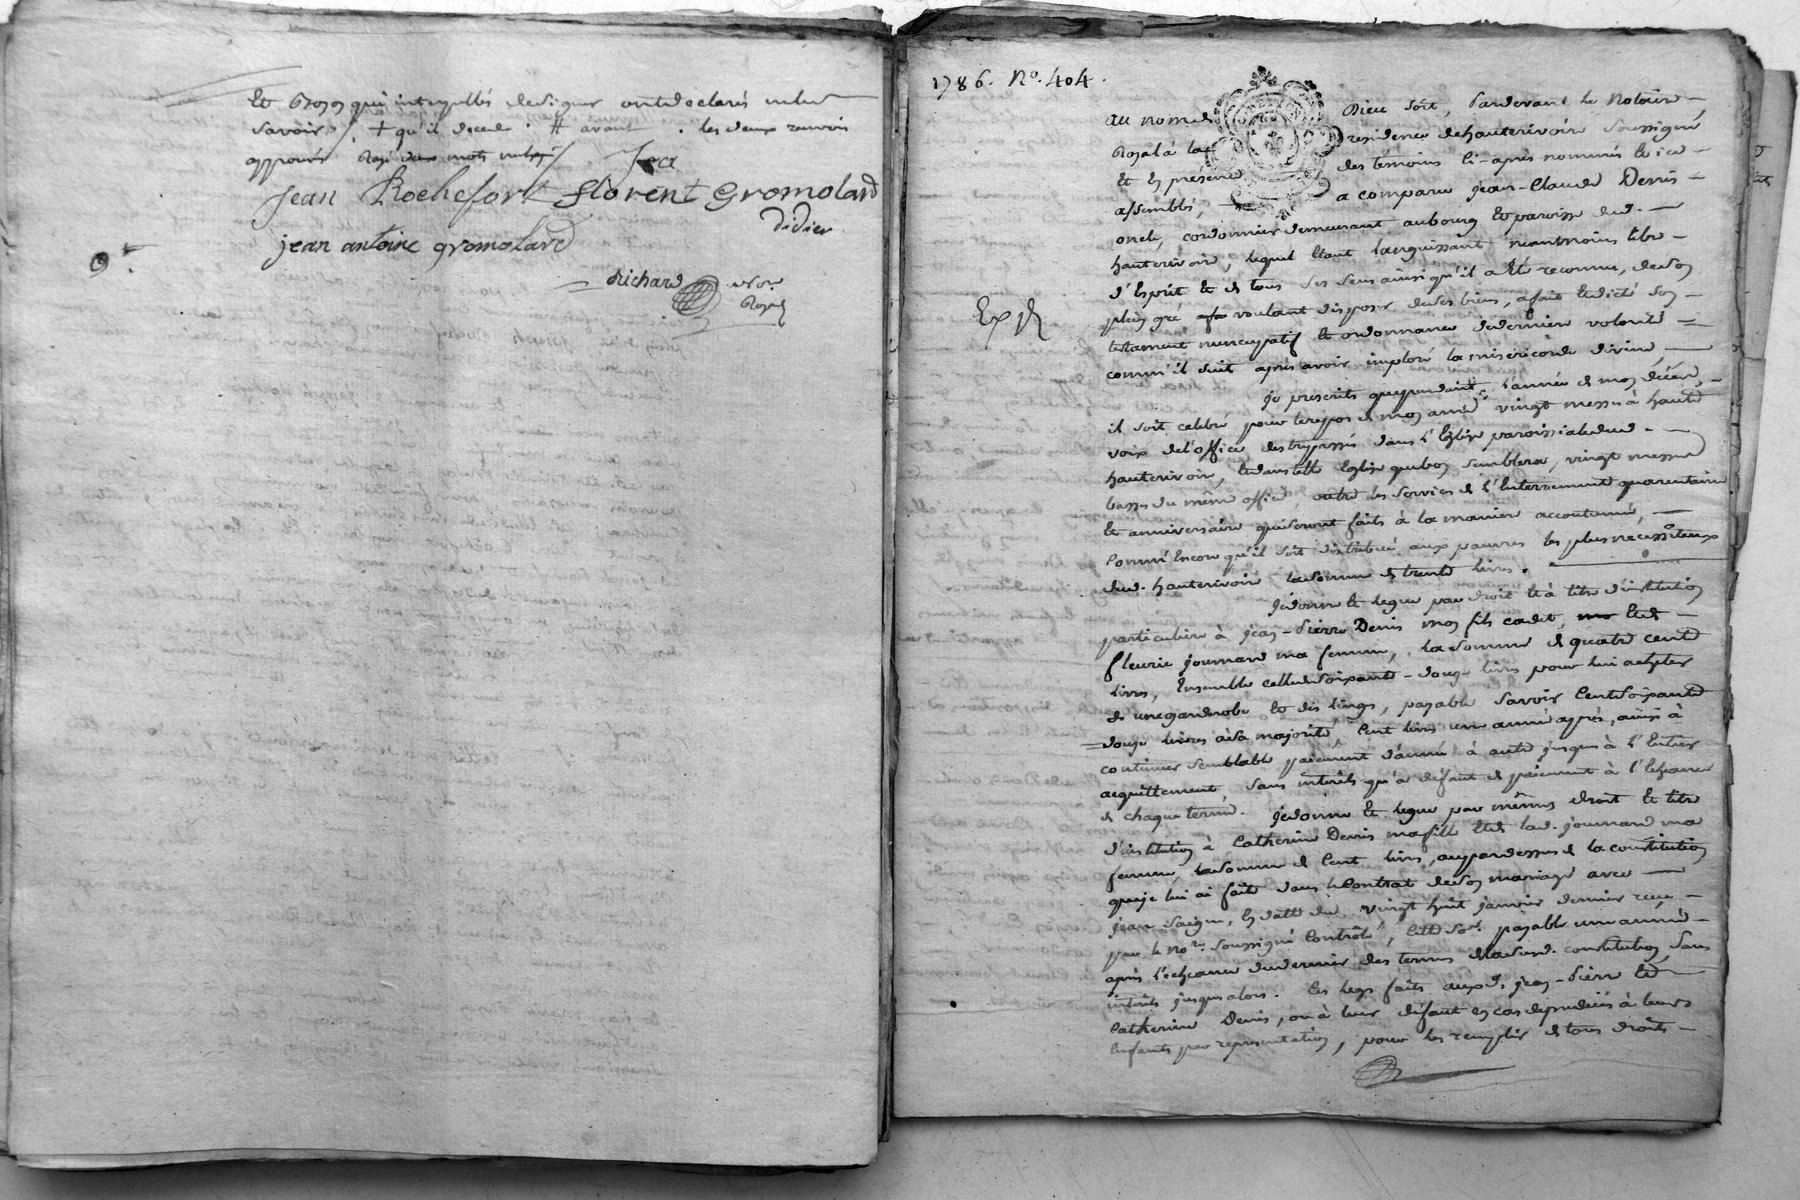 et Grozoz qui interpellés de signer ont declarés ne le
savoir. / + qu'il decede . # avant . les deux renvois
approuvés Rayé deux mots nuls /
Jean Rochefort florent Gromolard
didier
jean antoine gromolard
Richard no.re
Royal
1786. No. 404.
au nom de Dieu soit, Pardevant le Notaire
Royal à la residence de hauterivoire soussigné
Et En presence des témoins ci-après nommés Et ici
assemblés, a comparu jean-Claude Denis
oncle, cordonnier demeurant au bourg Et paroisse dud.
hauterivoire, lequel Etant languissant neantmoins libre
d'Esprit Et de tous ses sens ainsi qu'il a Eté reconnu, de son
plein gré voulant disposer de ses biens, a fait Et dicté son
testament nuncupatif Et ordonnance de dernière volonté
comm'il suit après avoir imploré la miséricorde divine
je prescrits que pendant l'année de mon décès,
il soit celebré pour le repos de mon ame vingt messes à haute
voix de l'office des trepassés dans l'Eglise paroissiale dud.
hauterivoire, Et dans telle Eglise que bon semblera, vingt messes
basses du même office, outre les services de l'Enterrement quarantaine
Et anniversaire qui seront faits à la manière accoutumée,
comm'Encore qu'il soit distribué aux pauvres les plus necessiteux
dud. hauterivoire la somme de trente livres.
je donne Et legue par droit Et à titre d'institution
particulière à jean-Pierre Denis mon fils cadet, Et de
fleurie journard ma femme, la somme de quatre cent
livres, Ensemble celle de soixante-douze livres pour lui acheter
de une garderobe Et des linges, payable savoir Cent soixante
douze livres à sa majorité, Cent livres une année après, ainsi à
continuer semblable paiement d'année à autre jusques à l'Entier
acquittement, sans intérêts qu'à défaut de paiement à l'Echeance
de chaque terme. je donne Et legue par mêmes droit Et titre
d'institution à Catherine Denis ma fille Et de lad. journard ma
femme, la somme de Cent livres, au par dessus de la constitution
que je lui ai faite dans le Contrat de son mariage avec
jean Saigne, En datte du vingt huit janvier dernier reçu
par le No.re soussigné Contrôlé, cette som. payable une année
après l'echeance du dernier des termes de lad. constitution, sans
intérêts jusques alors. les legs faits auxd. jean-Pierre Et
Catherine Denis, ou à leur défaut En cas de prédécès à leurs
Enfants par representation, pour les remplir de tous droits
Expé